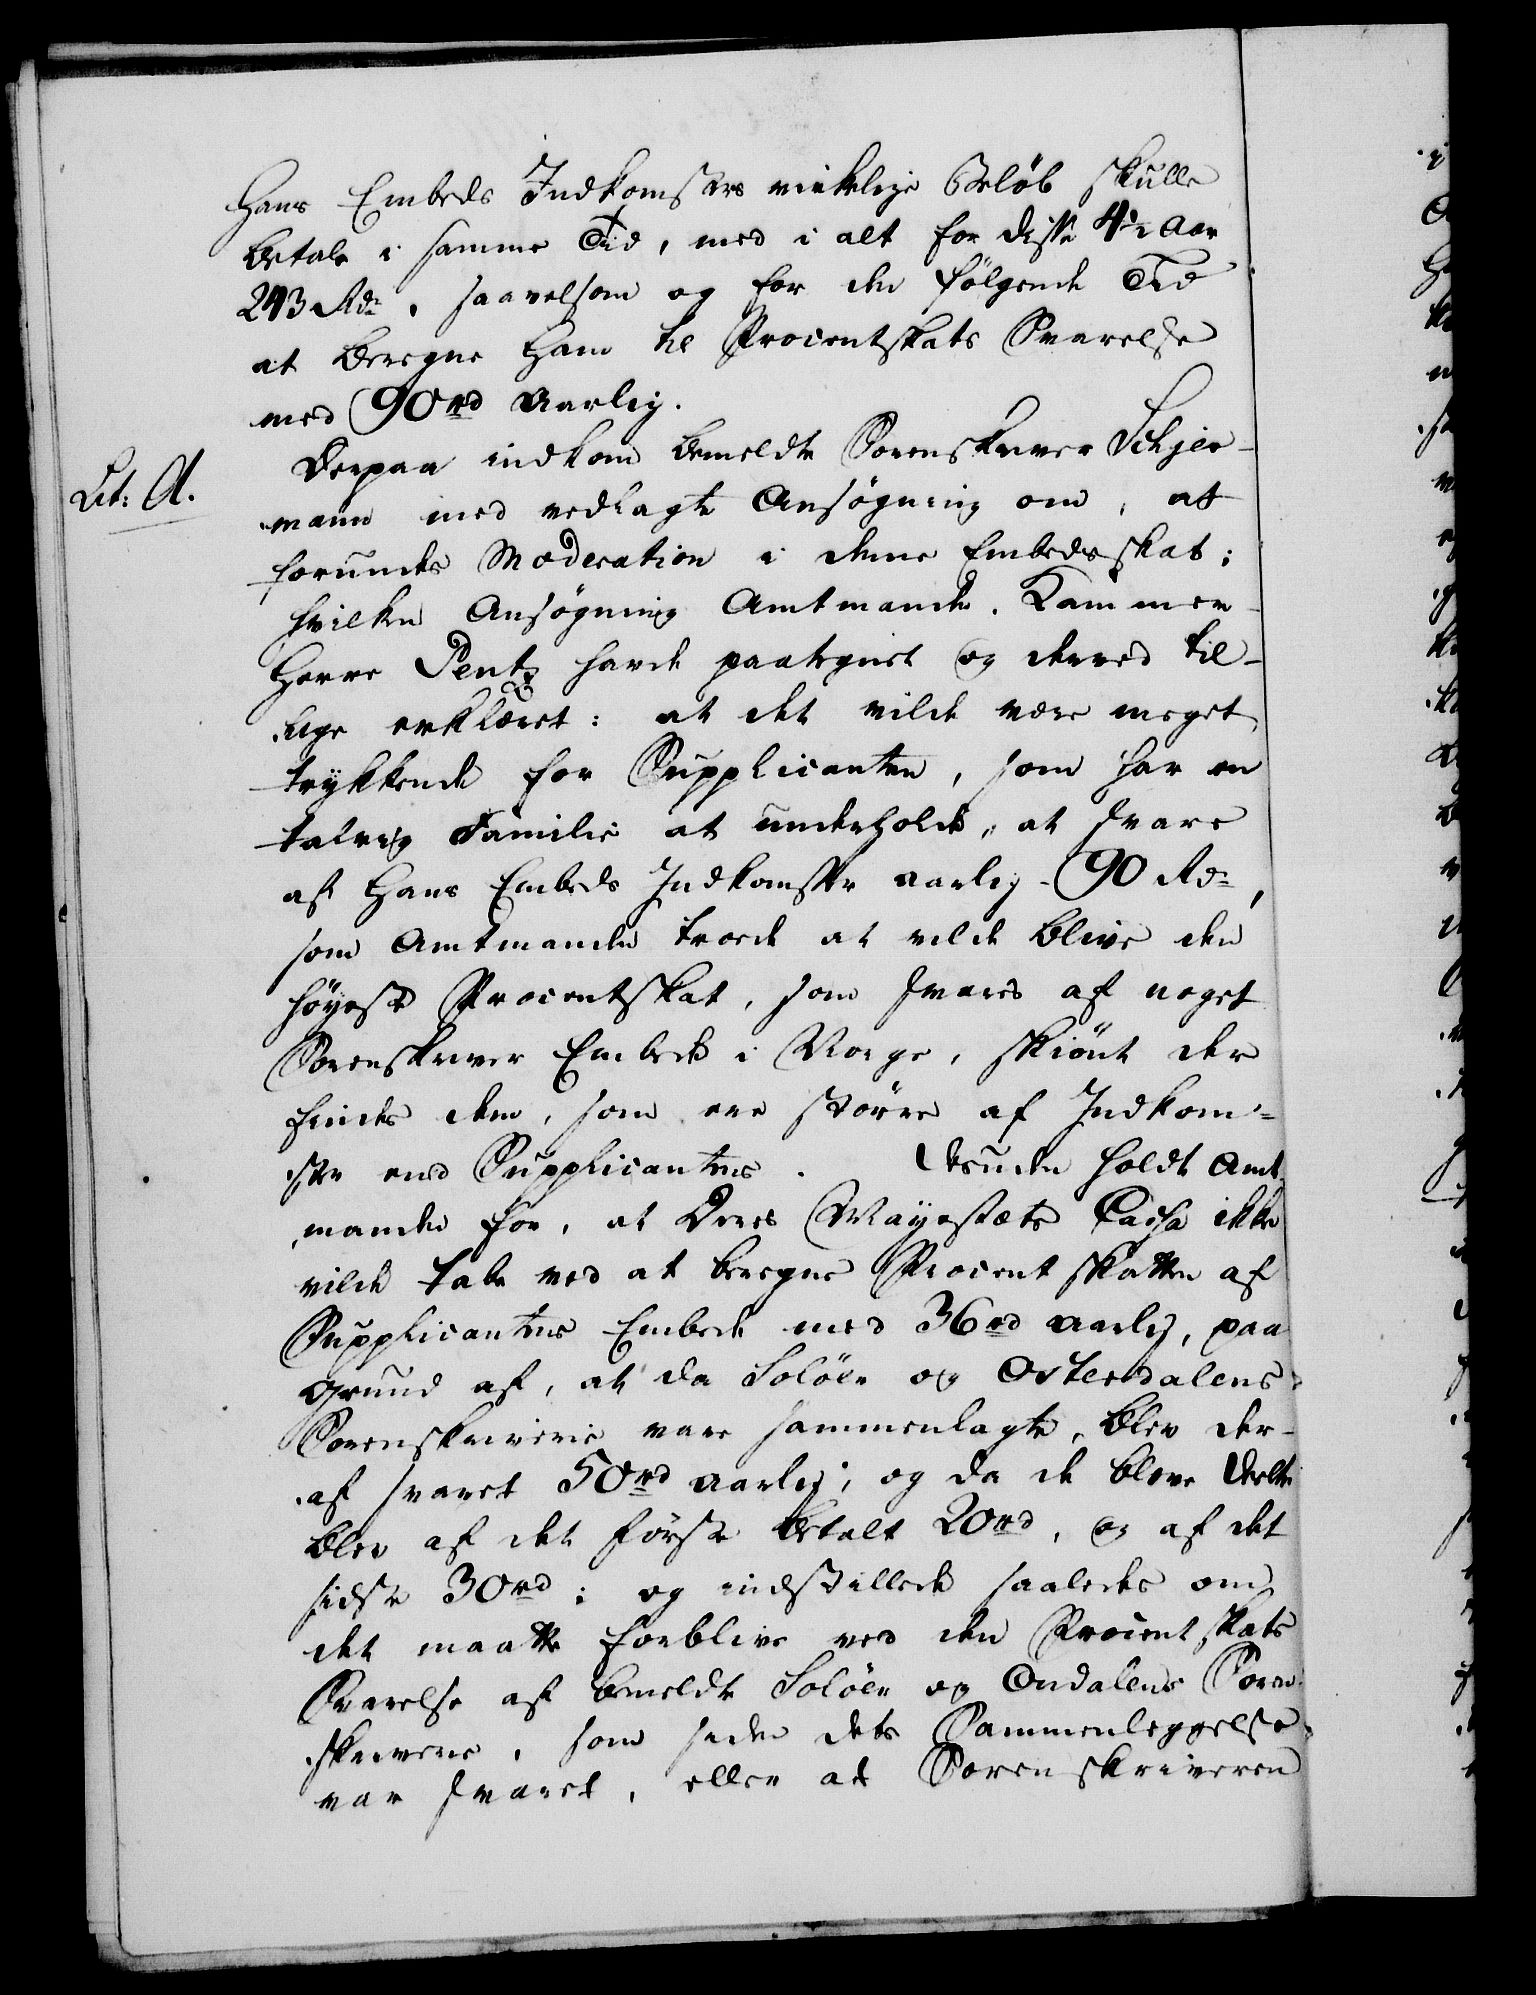 Hans Embeds Indkomsters virkelige Beløb skulle
betale i samme Tid, med i alt for disse 4½ Aar
243 Rdr, saavelsom og for den følgende Tid
at beregne Ham til Procentskats Svarelse
med 90 rd aarlig.
Derpaa indkom bemeldte Sorenskriver Schjer-
Lit: A.
mann med vedlagte Ansøgning om, at
forundes Moderation i denne Embedsskat;
hvilken Ansøgning Amtmanden, Kammer-
Herre Pentz havde paategnet og derved til-
lige erklæret: at det vilde være meget
trykkende for Supplicanten, som har en
talrig Familie at underholde, at svare
af Hans Embeds Indkomster aarlig 90 Rdr,
som Amtmanden troede at vilde blive den
høyeste Procentskat, som svares af noget
Sorenskriver Embede i Norge, skiønt der
findes dem, som ere større af Indkom-
ster end Supplicantens. Desuden holdt Amt-
manden for, at Deres Mayestæts Cassa ikke
vilde tabe ved at beregne Procent skatten af
Supplicantens Embede med 36 rd aarlig, paa
Grund af, at da Soløer og Østerdalens
Sorenskriverie vare sammenlagte, blev der-
af svaret 50 rd aarlig; og da de bleve deelte
blev af det første betalt 20 rd, og af det
sidste 30 rd; og indstillede saaledes om
det maatte forblive ved den Procent skats
Svarelse af bemeldte Soløer og Ondalens Soren-
skriverie, som siden dets Sammenleggelse
var svaret, eller at Sorenskriveren